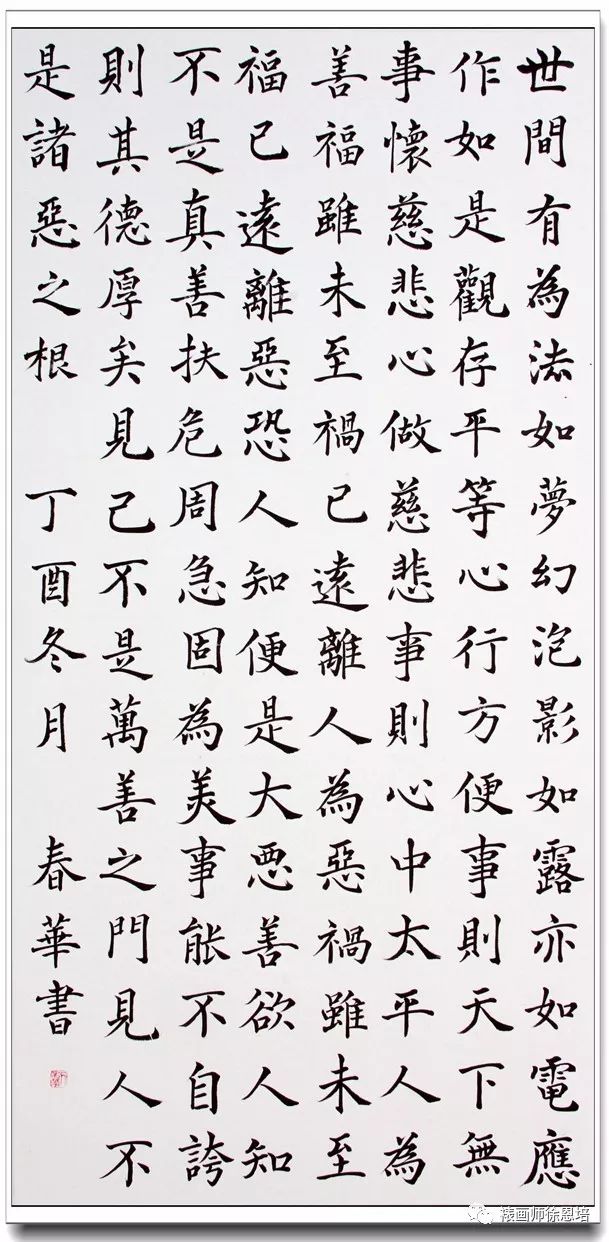 世間有為法如夢幻泡影如露亦如電應
作如是觀存平等心行方便事則天下無
事懷慈悲心做慈悲事則心中太平人為
善福雖未至禍已遠離人為惡禍雖未至
福已遠離惡恐人知便是大悪善欲人知
不是真善扶危周急固為美事能不自誇
則其德厚矣見己不是萬善之門見人不
是諸惡之根 丁酉冬月 春華書
裱画师徐恩培